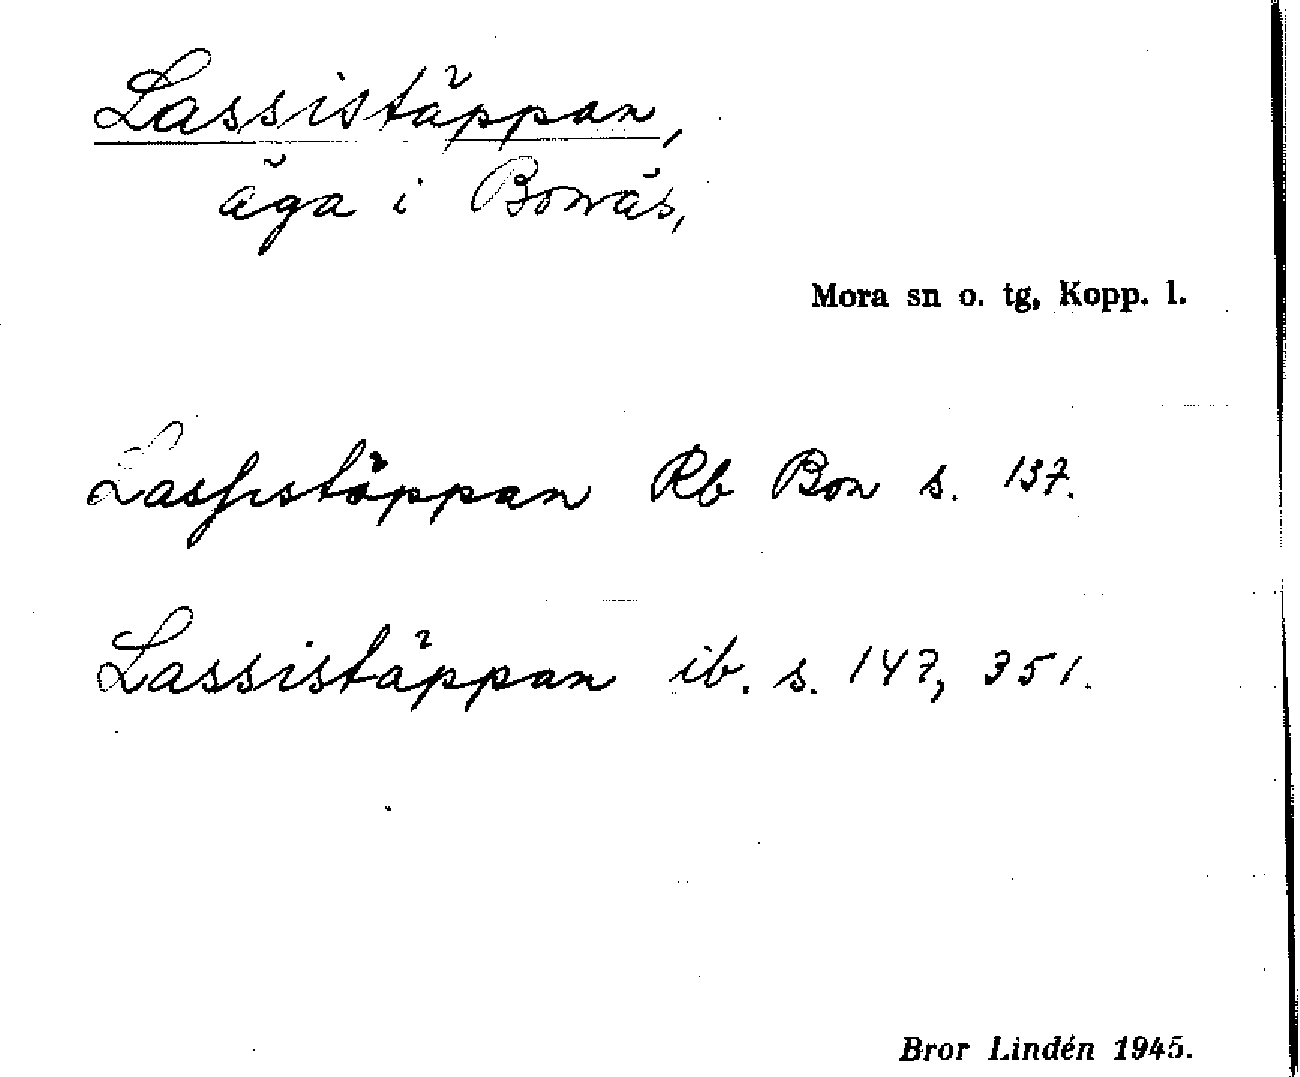 Lassistäppan,
äga i Bonäs,
Mora sn o. tg, Kopp. l.
Lassistäppan Rb Bon s. 137.
Lassistäppan ib. s. 147, 351.
Bror Lindén 1945.